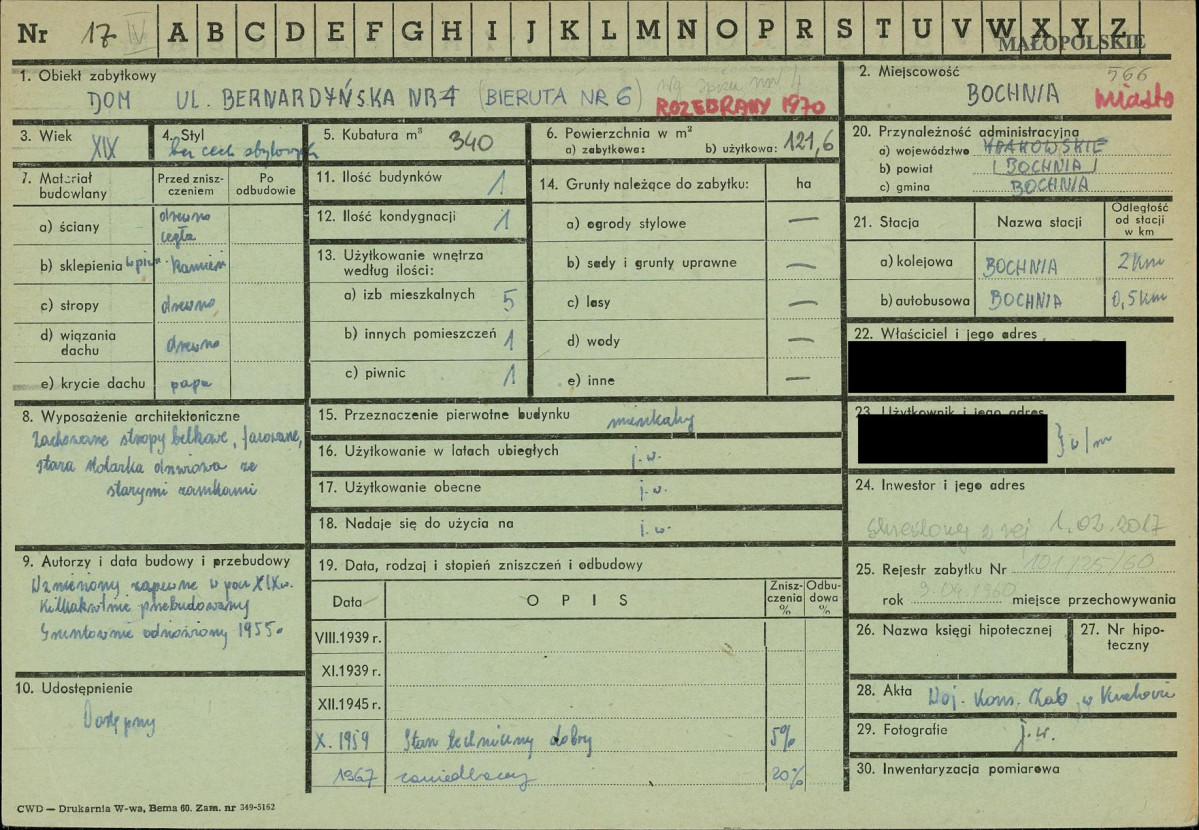 Nr 17 IV A B C D E F G H I J K L M N O P R S T U V W X Y Z
MAŁOPOLSKIE
1. Obiekt zabytkowy
DOM UL. BERNARDYŃSKA NR 4 (BIERUTA NR 6)
ROZEBRANY 1970
2. Miejscowość 566
BOCHNIA miasto
3. Wiek XIX
4. Styl
bez cech stylowych
5. Kubatura m³ 340
6. Powierzchnia w m²
a) zabytkowa: b) użytkowa: 121,6
20. Przynależność administracyjna
a) województwo KRAKOWSKIE
b) powiat BOCHNIA
c) gmina BOCHNIA
7. Materiał budowlany
Przed zniszczeniem
Po odbudowie
a) ściany drewno cegła
b) sklepienia w piw. kamień
c) stropy drewno
d) wiązania dachu drewno
e) krycie dachu papa
11. Ilość budynków 1
12. Ilość kondygnacji 1
13. Użytkowanie wnętrza według ilości:
a) izb mieszkalnych 5
b) innych pomieszczeń 1
c) piwnic 1
14. Grunty należące do zabytku: ha
a) ogrody stylowe —
b) sady i grunty uprawne —
c) lasy —
d) wody —
e) inne —
21. Stacja Nazwa stacji Odległość od stacji w km
a) kolejowa BOCHNIA 2 km
b) autobusowa BOCHNIA 0,5 km
22. Właściciel i jego adres
23. Użytkownik i jego adres
24. Inwestor i jego adres
Skreślony z rej 1.02.2017
25. Rejestr zabytku Nr 101/125/60
rok 9.04.1960 miejsce przechowywania
8. Wyposażenie architektoniczne
Zachowane stropy belkowe, fazowane,
stara stolarka drzwiowa ze
starymi zamkami
15. Przeznaczenie pierwotne budynku mieszkalny
16. Użytkowanie w latach ubiegłych j.w.
17. Użytkowanie obecne j.w.
18. Nadaje się do użycia na j.w.
9. Autorzy i data budowy i przebudowy
Wzniesiony zapewne w pocz XIX w.
Kilkakrotnie przebudowany
Gruntownie odnowiony 1955.
10. Udostępnienie
Dostępny
19. Data, rodzaj i stopień zniszczeń i odbudowy
Data OPIS Zniszczenia % Odbudowa %
VIII.1939 r.
XI.1939 r.
XII.1945 r.
X. 1959 Stan techniczny dobry 5%
1967 zaniedbany 20%
26. Nazwa księgi hipotecznej
27. Nr hipoteczny
28. Akta Woj. Kons. Zab. w Krakowie
29. Fotografie j.w.
30. Inwentaryzacja pomiarowa
CWD — Drukarnia W-wa, Bema 60. Zam. nr 349-5162